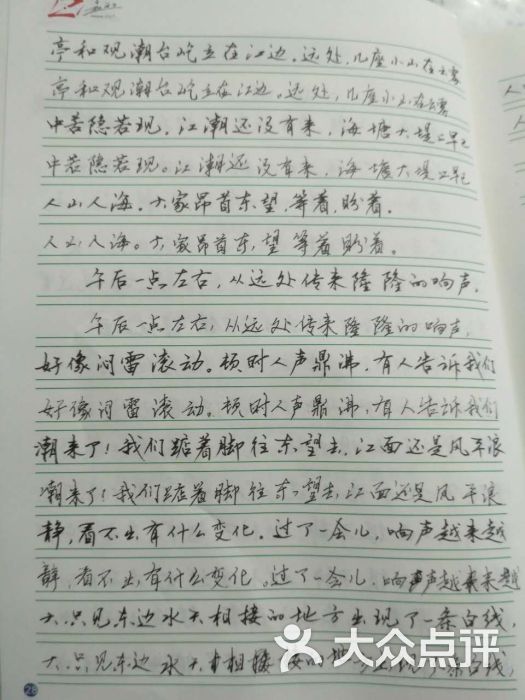 亭和观潮台屹立在江边。远处,几座小山在云雾
亭和观潮台屹立在江边。远处,几座小山在云雾
中若隐若现。江潮还没有来,海塘大堤上早已
中若隐若现。江潮还没有来,海塘大堤上早已
人山人海。大家昂首东望,等着,盼着。
人山人海。大家昂首东,望等着,盼着。
午后一点左右,从远处传来隆隆的响声,
午后一点左右,从远处传来隆隆的响声,
好像闷雷滚动。顿时人声鼎沸,有人告诉我们
好像闷雷滚动。顿时人声鼎沸,有人告诉我们
潮来了!我们踮着脚往东望去,江面还是风平浪
潮来了!我们踮着脚往东望去,江面还是风平浪
静,看不出有什么变化。过了一会儿,响声越来越
静,看不出有什么变化。过了一会儿,响声越来越
大,只见东边水天相接的地方出现了一条白线,
大,只见东边水天相接的地方出现了一条白线,
28
大众点评